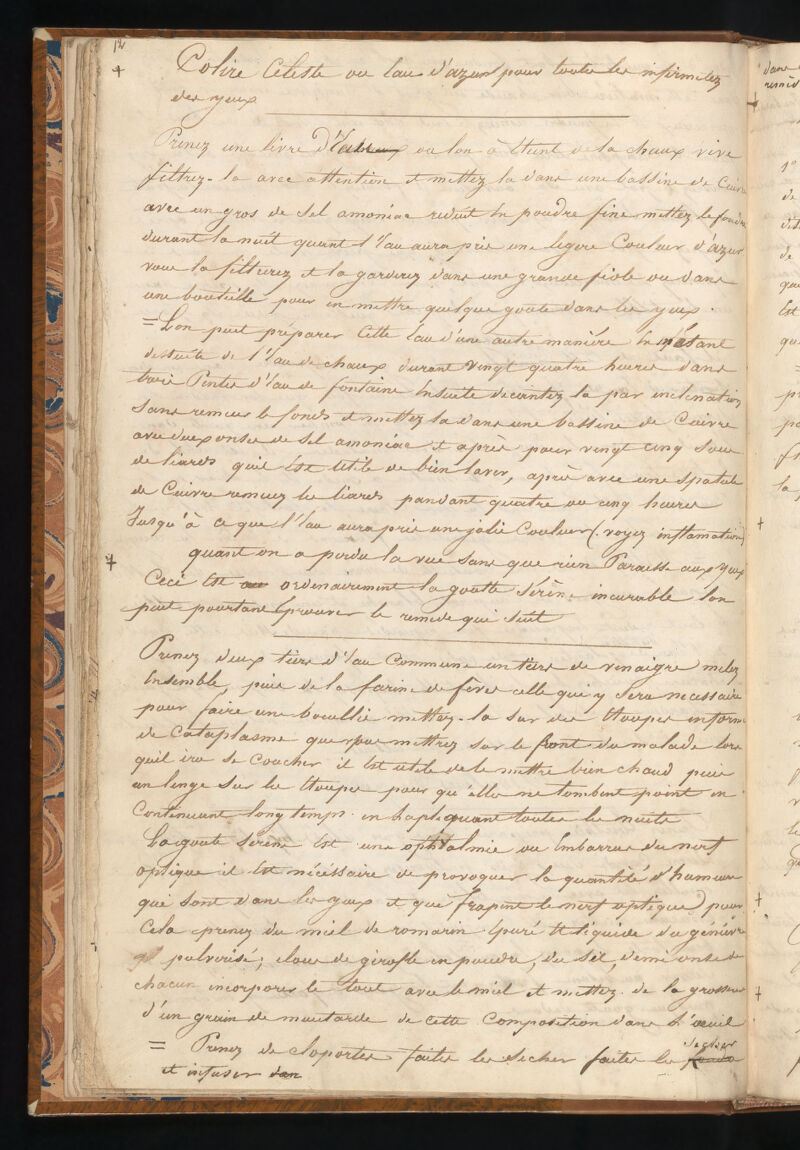 12
+ Colire Céleste ou Eau d'azur pour toutes les infirmitez
des yeux
Prenez une livre d'Eau ou lon à Eteint de la chaux vive
filtrez-la avec attention et mettez la dans une bassine de Cuivre
avec un gros de Sel amoniac reduit En poudre fine mettez le fondre
durant la nuit quant l'Eau aura pris une legere Couleur d'azur
vous la filterez et la garderez dans une grande fiole ou dans
une bouteille pour en mettre quelque goute dans les yeux.
= Lon peut préparer Cette Eau d'une autre maniére En métant
de l'Eau de chaux durant vingt quatre heures dans
trois Pintes d'Eau de fontaine Ensuite decantez la par inclination
Sans remuer le fonds et mettez la dans une bassine de Cuivre
avec deux onses de Sel amoniac et après pour vingt cinq Sous
de liards quil Est Utile de bien laver, après avec une Spatule
de Cuivre remuez les liards pandant quatre ou cinq heures
Jusqu'à ce que l'Eau aura pris une jolie Couleur (. voyez inflamation)
+ quant on a perdu la vue Sans que rien Paraisse aux yeux
Ceci Est ordinairement la goutte Séréne incurable lon
peut pourtant Eprouver le remede qui Suit
Prenez deux tiers d'Eau Commune un tiers de vinaigre melez
Ensemble, puis de la farine de féves celle qui y Sera necessaire
pour faire une bouillie mettez-la sur des Etoupes en forme
de Cataplasme que vous mettrez sur le front du malade lors
quil ira se Coucher il Est utile de le mettre bien chaud puis
un linge sur les Etoupes pour qu'elles ne tombent point en
Continuant longtemps en l'apliquant toutes les nuits
La goute Séréne Est une ophtalmie ou Embarras du nerf
optique il Est nécéssaire de provoquer la quantité d'humeurs
qui sont dans les yeux et que frapent le nerf optique) pour
Cela prenez du miel de romarin Epuré et liquide du geniévre
pulvérisé, clous de girofle en poudre, du Sel, demi onse de
chacun incorporez le tout avec le miel et mettez de la grosseur
d'un grain de moutarde de cette Composition dans L'oeuil
= Prenez de cloportes faites les Secher faites les secher
et infuser dan